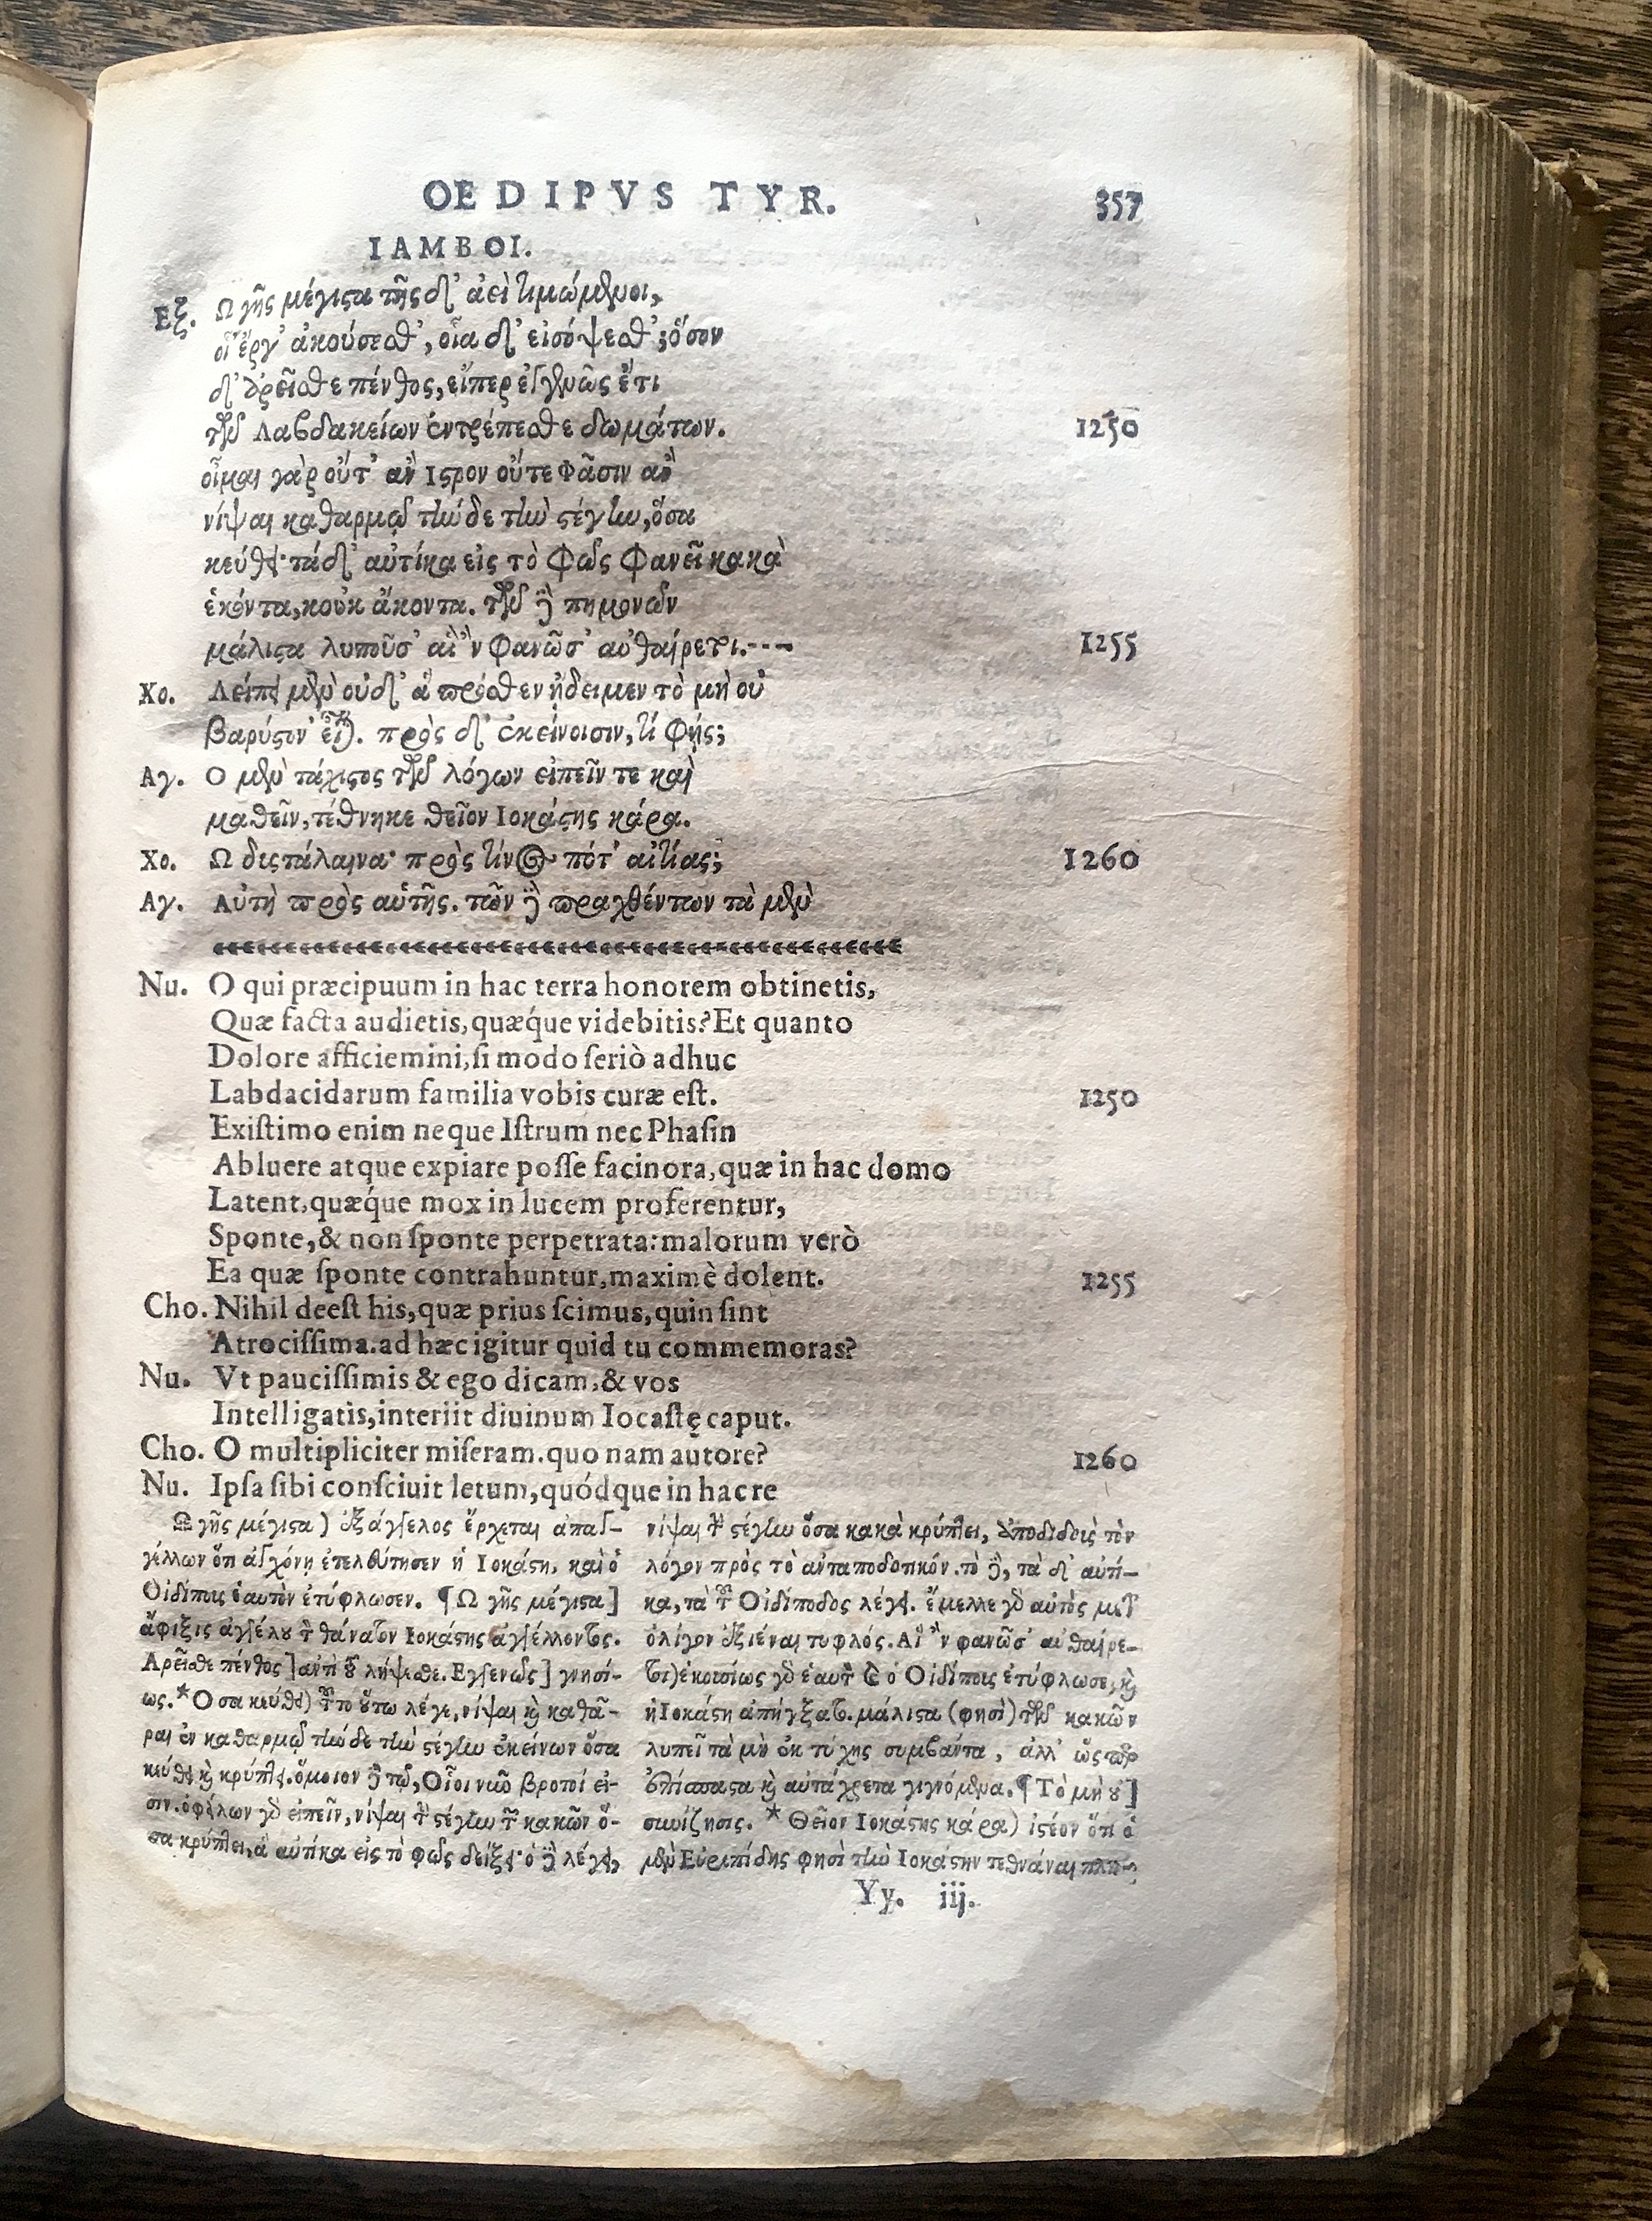 OEDIPVS TYR. 357
IAMBOI.
Εξ. Ω γῆς μέγιϛα τῆσδ' ἀεὶ τιμώμενοι,
οἷ' ἔργ' ἀκούσεσθ', οἷα δ' εἰσόψεσθ'; ὅσον
δ' ἀρεῖσθε πένθος, εἴπερ ἐγγενῶς ἔτι
τῶν Λαβδακείων ἐντρέπεσθε δωμάτων. 1250
οἶμαι γὰρ οὔτ' ἂν Ιϛρον οὔτε Φᾶσιν ἂν
νίψαι καθαρμῷ τήνδε τὴν ϛέγην, ὅσα
κεύθει· τάδ' αὐτίκα εἰς τὸ φῶς φανεῖ κακὰ
ἑκόντα, κοὐκ ἄκοντα. τῶν δὲ πημονῶν
μάλιϛα λυποῦσ' αἳ ἂν φανῶσ' αὐθαίρετοι.---- 1255
Χο. Λείπει μὲν οὐδ' ἃ πρόσθεν ᾔδειμεν τὸ μὴ οὐ
βαρύϛον' εἶναι. πρὸς δ' ἐκείνοισιν, τί φής;
Αγ. Ο μὲν τάχιϛος τῶν λόγων εἰπεῖν τε καὶ
μαθεῖν, τέθνηκε θεῖον Ιοκάϛης κάρα.
Χο. Ω δυϛάλαινα· πρὸς τίνος πότ' αἰτίας; 1260
Αγ. Αὐτὴ πρὸς αὑτῆς. τῶν δὲ πραχθέντων τὰ μὲν
Nu. O qui præcipuum in hac terra honorem obtinetis,
Quæ facta audietis, quæque videbitis? Et quanto
Dolore afficiemini, ſi modo ſeriò adhuc
Labdacidarum familia vobis curæ eſt. 1250
Exiſtimo enim neque Iſtrum nec Phaſin
Abluere atque expiare poſſe facinora, quæ in hac domo
Latent, quæque mox in lucem proferentur,
Sponte, & non ſponte perpetrata: malorum verò
Ea quæ ſponte contrahuntur, maximè dolent. 1255
Cho. Nihil deeſt his, quæ prius ſcimus, quin ſint
Atrociſſima. ad hæc igitur quid tu commemoras?
Nu. Vt pauciſſimis & ego dicam, & vos
Intelligatis, interiit diuinum Iocaſtę caput.
Cho. O multipliciter miſeram. quo nam autore? 1260
Nu. Ipſa ſibi conſciuit letum, quódque in hac re
Ω γῆς μέγιϛα) ἐξάγγελος ἔρχεται ἀπαγ-
γέλλων ὅτι ἀγχόνῃ ἐτελεύτησεν ἡ Ιοκάϛη, καὶ ὁ
Οἰδίπους ἑαυτὸν ἐτύφλωσεν. ¶ Ω γῆς μέγιϛα]
ἄφιξις ἀγγέλου τὸν θάνατον Ιοκάϛης ἀγγέλλοντος.
Αρεῖσθε πένθος] ἀντὶ τοῦ λήψεσθε. Εγγενῶς] γνησί-
ως. * Οσα κεύθει) τοῦτο οὕτω λέγε, νίψαι καὶ καθᾶ-
ραι ἐν καθαρμῷ τήνδε τὴν ϛέγην ἐκείνων ὅσα
κεύθει καὶ κρύπτει. ὅμοιον δὲ τῷ, Οἷοι νῦν βροτοί εἰ-
σιν. ὀφείλων γὰρ εἰπεῖν, νίψαι τὴν ϛέγην τῶν κακῶν ὅ-
σα κρύπτει, ἃ αὐτίκα εἰς τὸ φῶς δείξει· ὁ δὲ λέγει,
νίψαι τὴν ϛέγην ὅσα κακὰ κρύπτει, ἀποδιδοὺς τὸν
λόγον πρὸς τὸ ἀνταποδοτικόν. τὸ δὲ, τὰ δ' αὐτί-
κα, τὰ τοῦ Οἰδίποδος λέγει. ἔμελλε γὰρ αὐτὸς μετ'
ὀλίγον ἐξιέναι τυφλός. Αἳ ἂν φανῶσ' αὐθαίρε-
τοι) ἑκουσίως γὰρ ἑαυτὸν ὁ Οἰδίπους ἐτύφλωσε, καὶ
ἡ Ιοκάϛη ἀπήγξατο. μάλιϛα (φησὶ) τῶν κακῶν
λυπεῖ τὰ μὴ ἐκ τύχης συμβάντα, ἀλλ' ὥσπερ
ἐπίσπαϛα καὶ αὐτάγρετα γιγνόμενα. ¶ Τὸ μὴ οὐ]
συνίζησις. * Θεῖον Ιοκάϛης κάρα) ἰϛέον ὅτι ὁ
μὲν Εὐριπίδης φησὶ τὴν Ιοκάϛην τεθνάναι
Yy. iij.